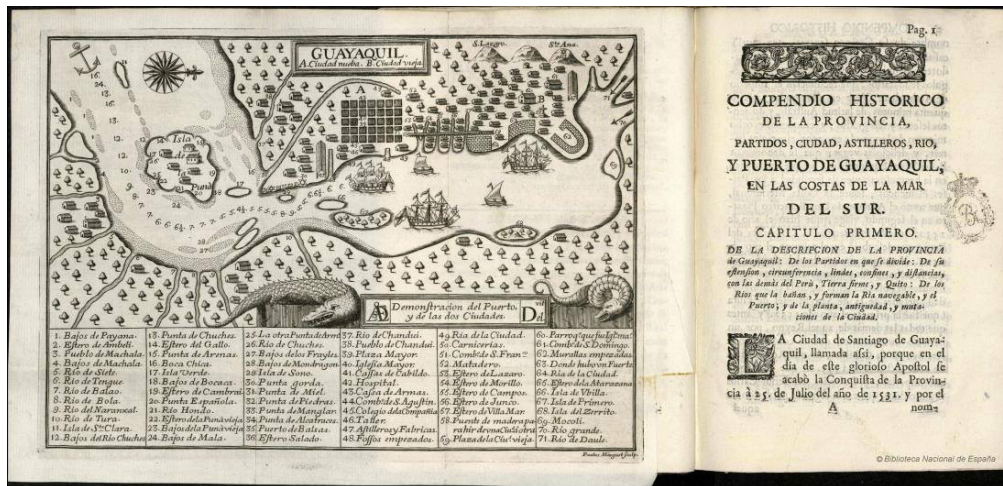 GUAYAQUIL.
A. Ciudad nueba. B. Ciudad vieja.
S. Lazaro.
Sta. Ana.
A
B
Isla
de
Puna
Demonstracion del Puerto.
y de las dos Ciudades.
1. Bajos de Payana.
2. Estero de Ambeli.
3. Pueblo de Machala.
4. Bajos de Machala.
5. Rio de Siete.
6. Rio de Tengue.
7. Rio de Balao.
8. Rio de Bola.
9. Rio del Naranxal.
10. Rio de Tura.
11. Isla de Sta. Clara.
12. Bajos del Rio Chuches
13. Punta de Chuches.
14. Estero del Gallo.
15. Punta de Arenas.
16. Boca Chica.
17. Isla Verde.
18. Bajos de Bocaca.
19. Estero de Cambrai
20. Punta Española.
21. Rio Hondo.
22. Estero de la Puna vieja
23. Bajos de la Puna vieja
24. Bajos de Mala.
25. La otra Punta de Arenas
26. Rio de Chuches.
27. Bajos de los Frayles.
28. Bajos de Mondragon
29. Isla de Sono.
30. Punta gorda.
31. Punta de Miel.
32. Punta de Piedras.
33. Punta de Manglar.
34. Punta de Alcatraces.
35. Puerto de Balsas.
36. Estero Salado.
37. Rio de Chandui.
38. Pueblo de Chandui.
39. Plaza Mayor.
40. Iglesia Mayor.
41. Cassas de Cabildo.
42. Hospital.
43. Casa de Armas.
44. Combto. de S. Agustin.
45. Colegio de la Compañia
46. Taller.
47. Astilleros y Fabricas.
48. Fossos empezados.
49. Ria de la Ciudad.
50. Carnicerias.
51. Combto. de S. Franco.
52. Matadero.
53. Estero de Lazaro.
54. Estero de Morillo.
55. Estero de Campos.
56. Estero de Junco.
57. Estero de Villa Mar.
58. Puente de madera pa
59. Plaza de la Ciud. vieja.
61. Combto. de S. Domingo.
62. Murallas empezadas
63. Donde hubo un Fuerte
64. Ria de la Ciudad.
65. Estero de la Atarazana
66. Isla de Vbilla.
67. Isla de Primero.
68. Isla del Zerrito.
69. Mocoli.
70. Rio grande.
71. Rio de Daule.
Paulus Minguet sculp.
Pag. 1
COMPENDIO HISTORICO
DE LA PROVINCIA,
PARTIDOS, CIUDAD, ASTILLEROS, RIO,
Y PUERTO DE GUAYAQUIL,
EN LAS COSTAS DE LA MAR
DEL SUR.
CAPITULO PRIMERO.
DE LA DESCRIPCION DE LA PROVINCIA
de Guayaquil: De los Partidos en que se divide: De su
estension, circunferencia, lindes, confines, y distancias,
con las demás del Perù, Tierra firme, y Quito: De los
Rios que la bañan, y forman la Ria navegable, y el
Puerto; y de la planta, antiguedad, y muta-
ciones de la Ciudad.
LA Ciudad de Santiago de Guaya-
quil, llamada assi, porque en el
dia de este glorioso Apostol se
acabò la Conquista de la Provin-
cia à 25. de Julio del año de 1531. y por el
A nom-
© Biblioteca Nacional de España